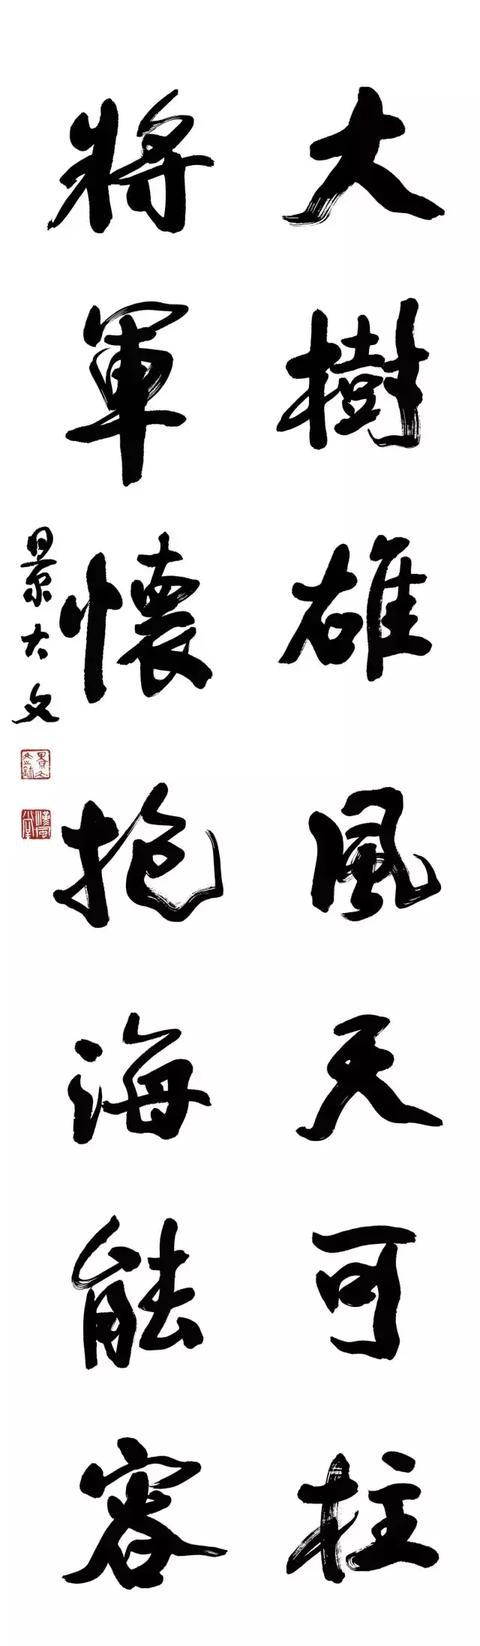 大樹雄風天可柱
將軍懷抱海能容
景大文